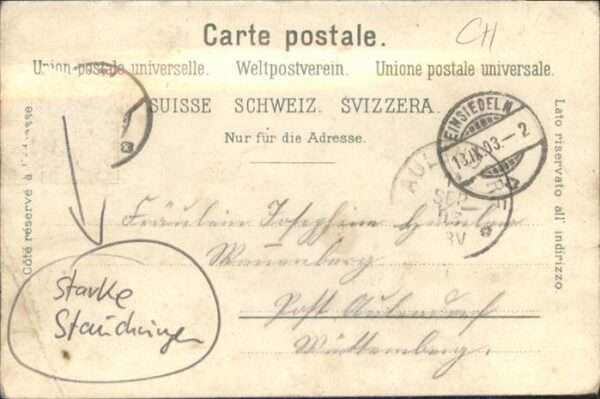 Carte postale.
CH
Union postale universelle. Weltpostverein. Unione postale universale.
SUISSE SCHWEIZ. SVIZZERA.
Nur für die Adresse.
Côté réservé à l'adresse.
Lato riservato all' indirizzo.
EINSIEDELN
13.IX.03.-2
AUL
SEP
Fräulein Josephine
Post Aulendorf
Württemberg.
starke